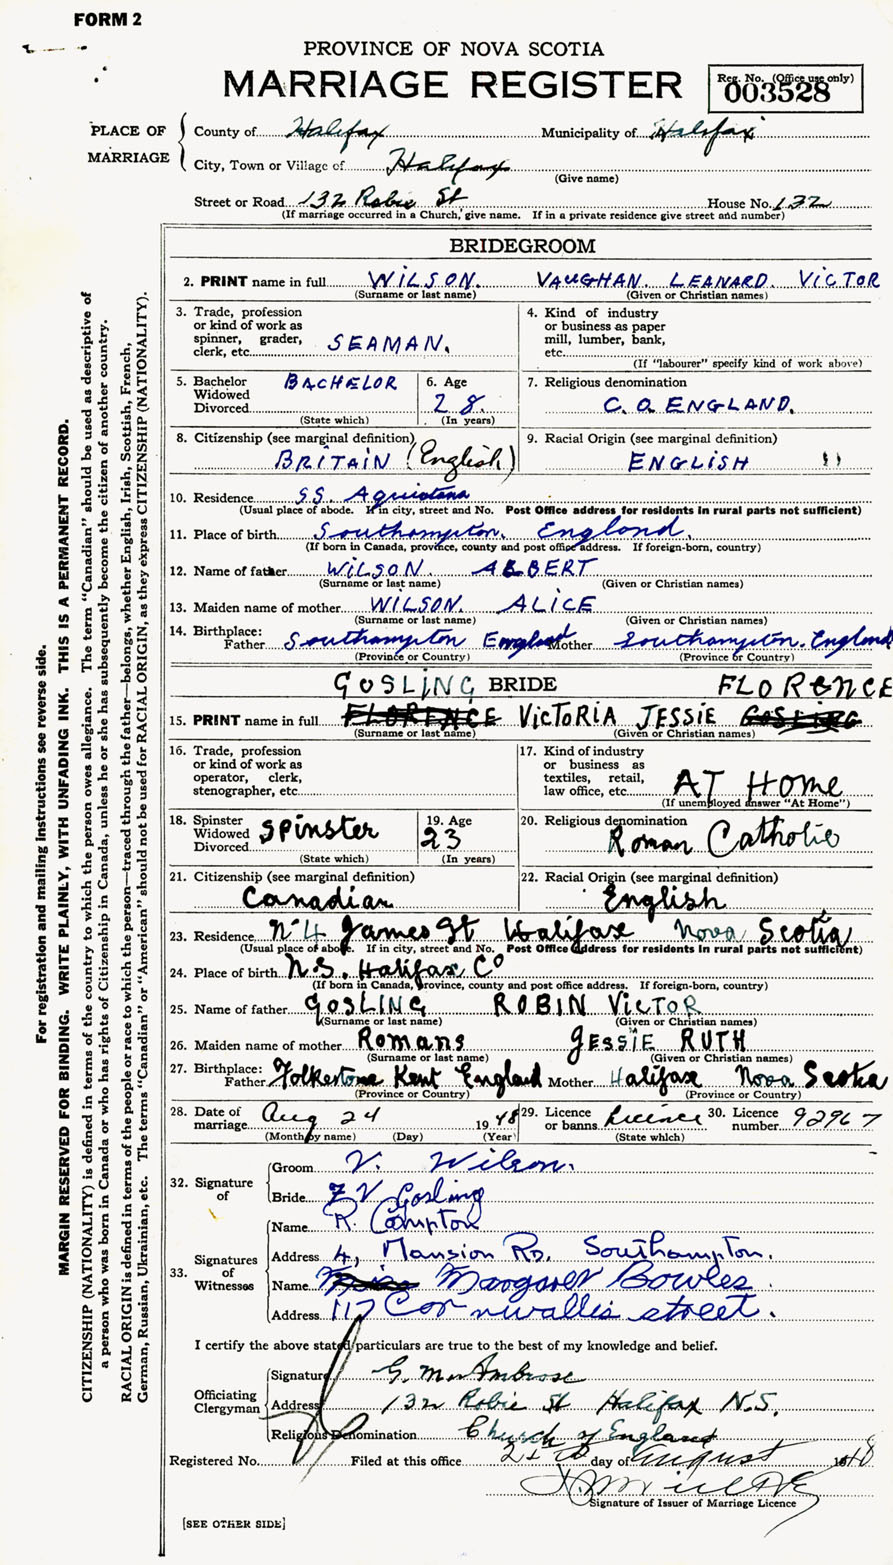 FORM 2
PROVINCE OF NOVA SCOTIA
MARRIAGE REGISTER
Reg. No. (Office use only)
003528
PLACE OF MARRIAGE
County of Halifax Municipality of Halifax
City, Town or Village of Halifax
(Give name)
Street or Road 132 Robie St House No. 132
(If marriage occurred in a Church, give name. If in a private residence give street and number)
BRIDEGROOM
2. PRINT name in full WILSON. VAUGHAN LEANARD VICTOR
(Surname or last name) (Given or Christian names)
3. Trade, profession or kind of work as spinner, grader, clerk, etc. SEAMAN.
4. Kind of industry or business as paper mill, lumber, bank, etc.
(If "labourer" specify kind of work above)
5. Bachelor Widowed Divorced BACHELOR
(State which)
6. Age 28.
(In years)
7. Religious denomination
C. O ENGLAND.
8. Citizenship (see marginal definition)
BRITAIN (English)
9. Racial Origin (see marginal definition)
ENGLISH "
10. Residence SS. Aquiotana
(Usual place of abode. If in city, street and No. Post Office address for residents in rural parts not sufficient)
11. Place of birth Southampton. England.
(If born in Canada, province, county and post office address. If foreign-born, country)
12. Name of father WILSON. ALBERT
(Surname or last name) (Given or Christian names)
13. Maiden name of mother WILSON. ALICE
(Surname or last name) (Given or Christian names)
14. Birthplace:
Father Southampton England Mother Southampton. England
(Province or Country) (Province or Country)
GOSLING BRIDE FLORENCE
15. PRINT name in full FLORENCE VICTORIA JESSIE GOSLING
(Surname or last name) (Given or Christian names)
16. Trade, profession or kind of work as operator, clerk, stenographer, etc.
17. Kind of industry or business as textiles, retail, law office, etc. AT HOME
(If unemployed answer "At Home")
18. Spinster Widowed Divorced Spinster
(State which)
19. Age
23
(In years)
20. Religious denomination
Roman Catholic
21. Citizenship (see marginal definition)
Canadian
22. Racial Origin (see marginal definition)
English
23. Residence No 4 James St Halifax Nova Scotia
(Usual place of abode. If in city, street and No. Post Office Address for residents in rural parts not sufficient)
24. Place of birth N.S. Halifax Co
(If born in Canada, province, county and post office address. If foreign-born, country)
25. Name of father GOSLING ROBIN VICTOR
(Surname or last name) (Given or Christian names)
26. Maiden name of mother Romans JESSIE RUTH
(Surname or last name) (Given or Christian names)
27. Birthplace:
Father Folkestone Kent England Mother Halifax Nova Scotia
(Province or Country) (Province or Country)
28. Date of marriage Aug 24 1948
(Month by name) (Day) (Year)
29. Licence or banns Licence
(State which)
30. Licence number 92967
32. Signature of
Groom V. Wilson.
Bride F V Gosling
33. Signatures of Witnesses
Name R. Compton
Address 4, Mansion Rd. Southampton.
Name Margaret Bowles
Address 117 Cornwallis street.
I certify the above stated particulars are true to the best of my knowledge and belief.
Officiating Clergyman
Signature G. M. Ambrose
Address 132 Robie St Halifax N.S.
Religious Denomination Church of England
Registered No. Filed at this office day of August 1948
Signature of Issuer of Marriage Licence
[SEE OTHER SIDE]
For registration and mailing instructions see reverse side.
MARGIN RESERVED FOR BINDING. WRITE PLAINLY, WITH UNFADING INK. THIS IS A PERMANENT RECORD.
CITIZENSHIP (NATIONALITY) is defined in terms of the country to which the person owes allegiance. The term "Canadian" should be used as descriptive of
a person who was born in Canada or who has rights of Citizenship in Canada, unless he or she has subsequently become the citizen of another country.
RACIAL ORIGIN is defined in terms of the people or race to which the person—traced through the father—belongs, whether English, Irish, Scottish, French,
German, Russian, Ukrainian, etc. The terms "Canadian" or "American" should not be used for RACIAL ORIGIN, as they express CITIZENSHIP (NATIONALITY).